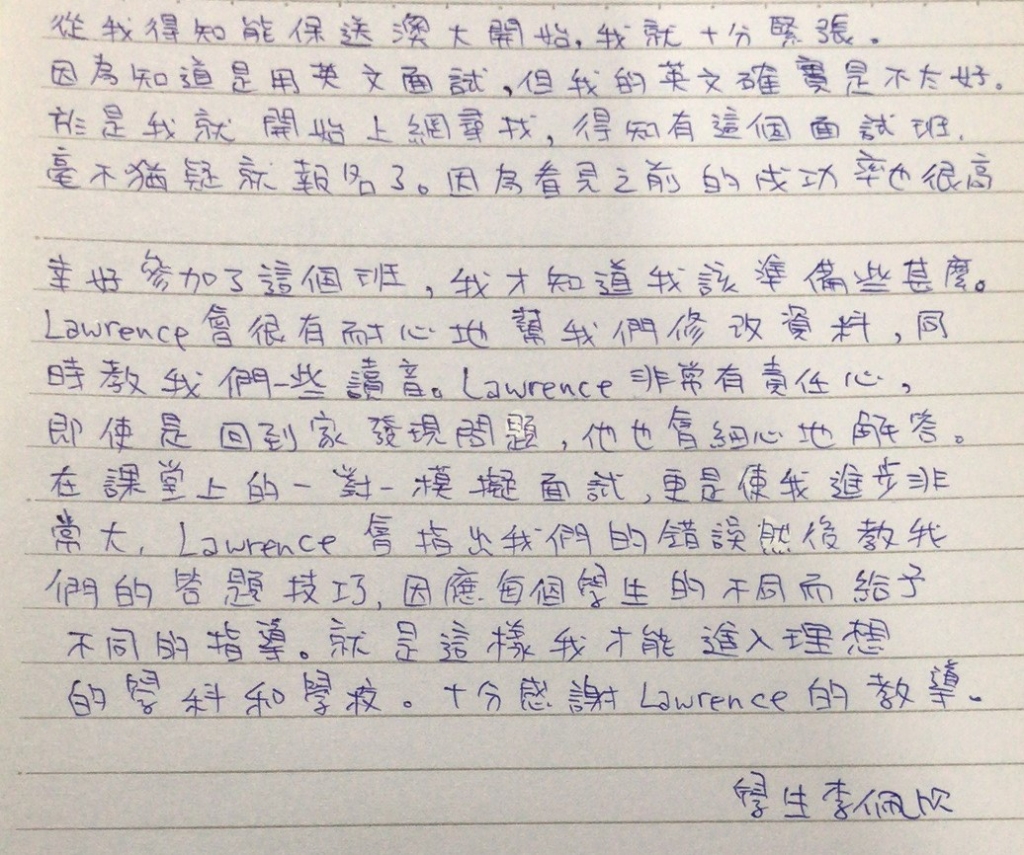 從我得知能保送澳大開始,我就十分緊張。
因為知道是用英文面試,但我的英文確實是不太好。
於是我就開始上網尋找,得知有這個面試班,
毫不猶疑就報名了。因為看見之前的成功率也很高
幸好參加了這個班,我才知道我該準備些甚麼。
Lawrence會很有耐心地幫我們修改資料,同
時教我們一些讀音。Lawrence非常有責任心,
即使是回到家發現問題,他也會細心地解答。
在課堂上的一對一模擬面試,更是使我進步非
常大,Lawrence會指出我們的錯誤然後教我
們的答題技巧,因應每個學生的不同而給予
不同的指導。就是這樣我才能進入理想
的學科和學校。十分感謝Lawrence的教導。
學生李佩欣